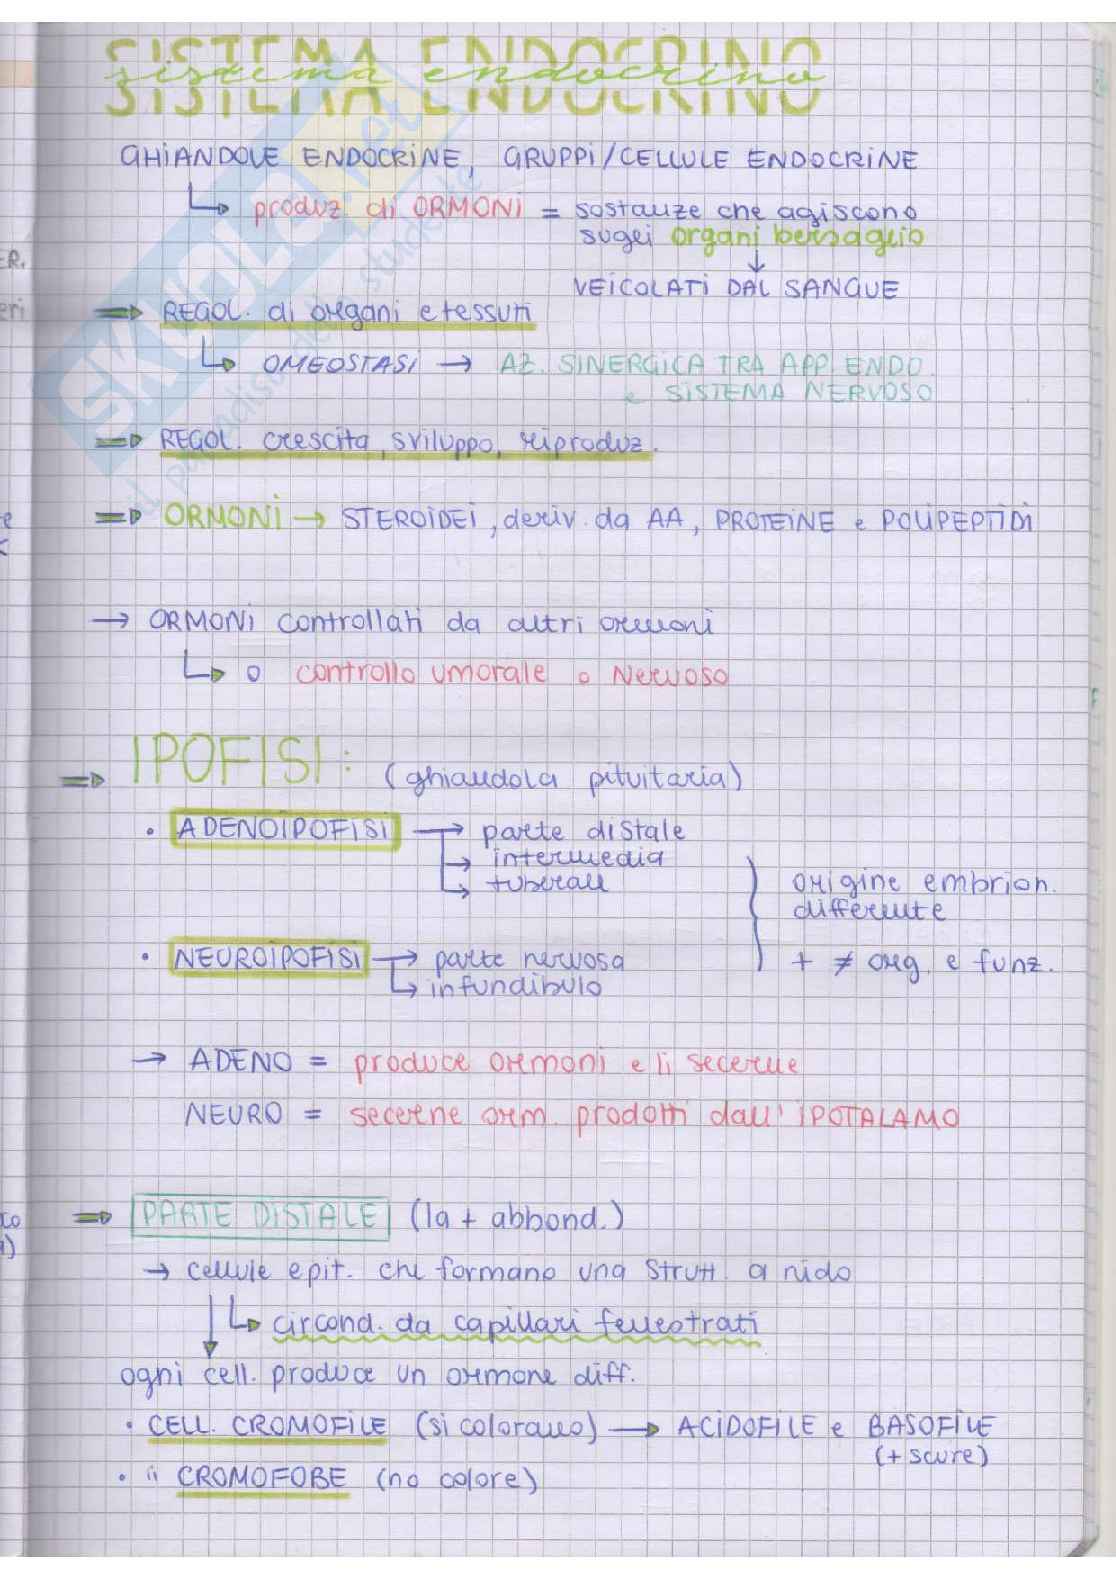 SISTEMA ENDOCRINO
sistema endocrino
GHIANDOLE ENDOCRINE, GRUPPI/CELLULE ENDOCRINE
produz. di ORMONI = sostanze che agiscono
sugli organi bersaglio
VEICOLATI DAL SANGUE
REGOL. di organi e tessuti
OMEOSTASI → AZ. SINERGICA TRA APP. ENDO.
e SISTEMA NERVOSO
REGOL. crescita, sviluppo, riproduz.
ORMONI → STEROIDEI, deriv. da AA, PROTEINE e POLIPEPTIDI
→ ORMONI controllati da altri ormoni
o controllo umorale o Nervoso
IPOFISI: (ghiandola pituitaria)
• ADENOIPOFISI → parte distale
→ intermedia
→ tuberale
origine embrion.
differente
• NEUROIPOFISI → parte nervosa
+ ≠ org. e funz.
→ infundibulo
→ ADENO = produce ormoni e li secerne
NEURO = secerne orm. prodotti dall'IPOTALAMO
PARTE DISTALE (la + abbond.)
→ cellule epit. che formano una strutt. a nido
circond. da capillari fenestrati
ogni cell. produce un ormone diff.
• CELL. CROMOFILE (si colorano) → ACIDOFILE e BASOFILE
(+ scure)
• " CROMOFOBE (no colore)
ER.
eri
SKUOLA.net
il paradiso dello studente